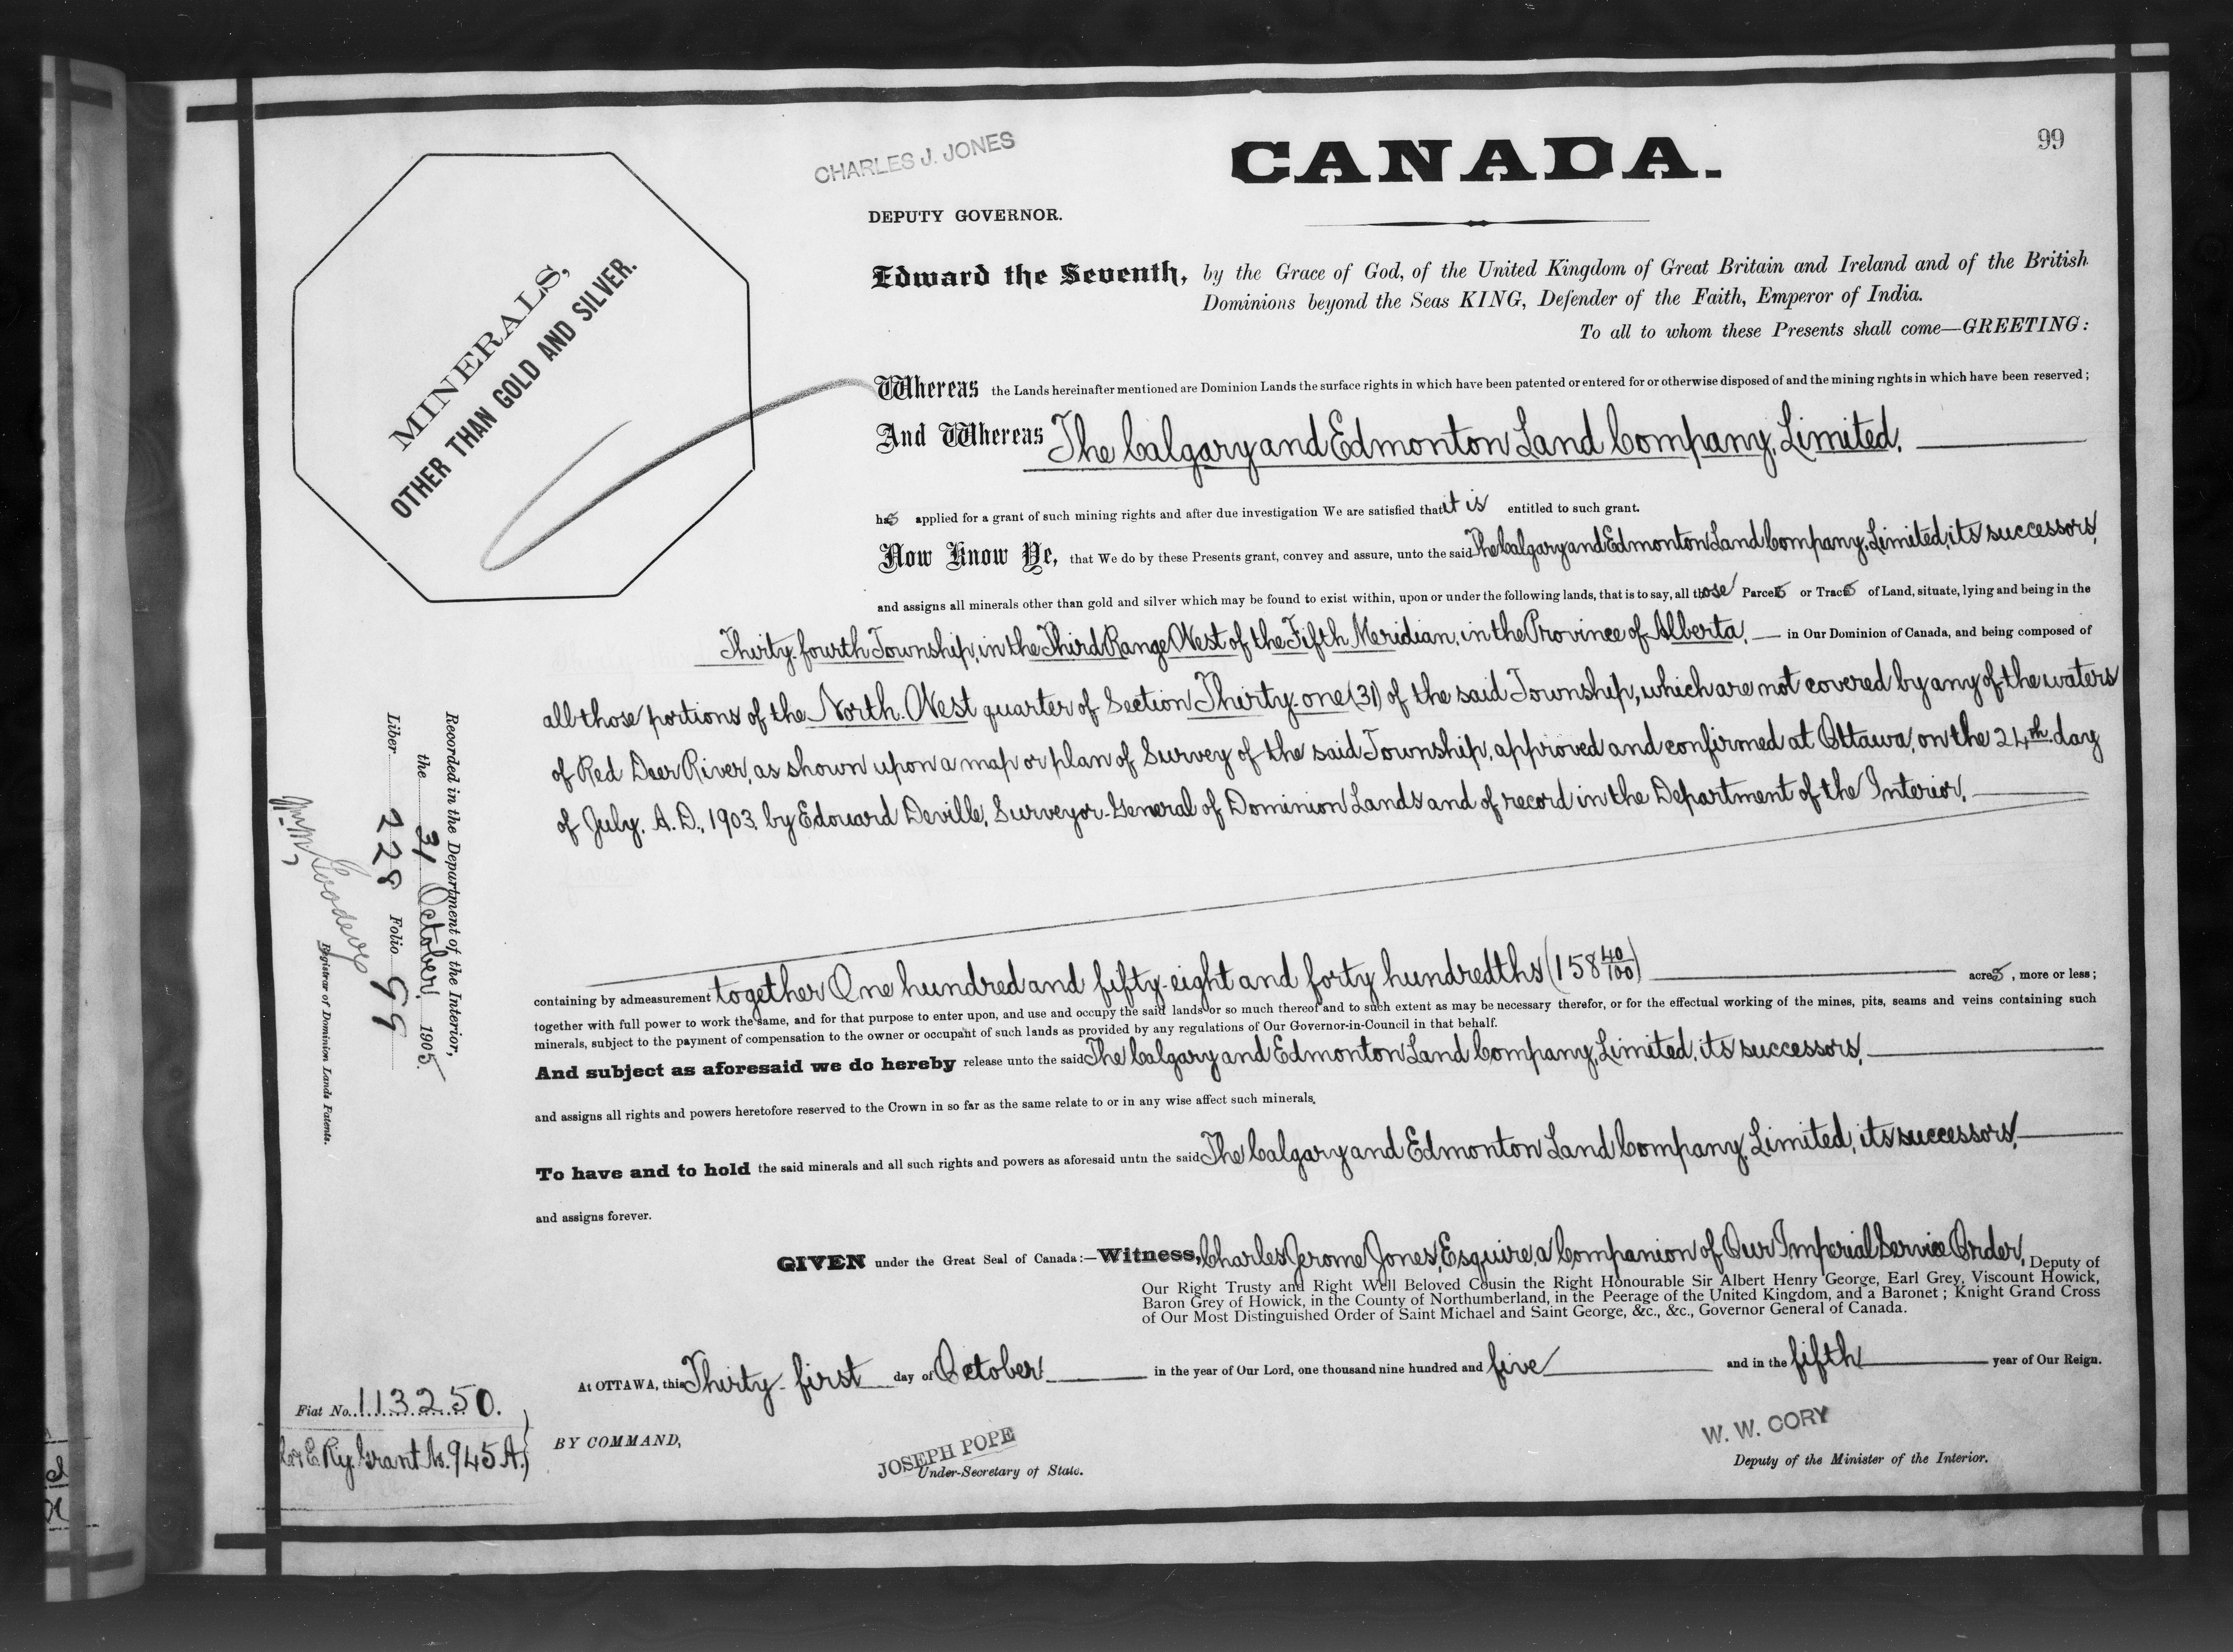 99
CHARLES J. JONES
CANADA.
DEPUTY GOVERNOR.
MINERALS,
OTHER THAN GOLD AND SILVER.
Edward the Seventh, by the Grace of God, of the United Kingdom of Great Britain and Ireland and of the British
Dominions beyond the Seas KING, Defender of the Faith, Emperor of India.
To all to whom these Presents shall come—GREETING:
Whereas the Lands hereinafter mentioned are Dominion Lands the surface rights in which have been patented or entered for or otherwise disposed of and the mining rights in which have been reserved;
And Whereas The Calgary and Edmonton Land Company, Limited,
has applied for a grant of such mining rights and after due investigation We are satisfied that it is entitled to such grant.
Now Know Ye, that We do by these Presents grant, convey and assure, unto the said The Calgary and Edmonton Land Company, Limited, its successors,
and assigns all minerals other than gold and silver which may be found to exist within, upon or under the following lands, that is to say, all those Parcels or Tracts of Land, situate, lying and being in the
Thirty-fourth Township, in the Third Range West of the Fifth Meridian, in the Province of Alberta, in Our Dominion of Canada, and being composed of
all those portions of the North-West quarter of Section Thirty-one (31) of the said Township, which are not covered by any of the waters
of Red Deer River, as shown upon a map or plan of Survey of the said Township, approved and confirmed at Ottawa, on the 24th day
of July, A. D., 1903 by Edouard Deville, Surveyor-General of Dominion Lands and of record in the Department of the Interior,
containing by admeasurement together One hundred and fifty-eight and forty hundredths (158 40/100) acres, more or less;
together with full power to work the same, and for that purpose to enter upon, and use and occupy the said lands or so much thereof and to such extent as may be necessary therefor, or for the effectual working of the mines, pits, seams and veins containing such
minerals, subject to the payment of compensation to the owner or occupant of such lands as provided by any regulations of Our Governor-in-Council in that behalf.
And subject as aforesaid we do hereby release unto the said The Calgary and Edmonton Land Company, Limited, its successors,
and assigns all rights and powers heretofore reserved to the Crown in so far as the same relate to or in any wise affect such minerals,
To have and to hold the said minerals and all such rights and powers as aforesaid unto the said The Calgary and Edmonton Land Company, Limited, its successors,
and assigns forever.
GIVEN under the Great Seal of Canada:—Witness, Charles Jerome Jones, Esquire, a Companion of Our Imperial Service Order, Deputy of
Our Right Trusty and Right Well Beloved Cousin the Right Honourable Sir Albert Henry George, Earl Grey, Viscount Howick,
Baron Grey of Howick, in the County of Northumberland, in the Peerage of the United Kingdom, and a Baronet; Knight Grand Cross
of Our Most Distinguished Order of Saint Michael and Saint George, &c., &c., Governor General of Canada.
At OTTAWA, this Thirty-first day of October in the year of Our Lord, one thousand nine hundred and five and in the fifth year of Our Reign.
BY COMMAND,
JOSEPH POPE
Under-Secretary of State.
W. W. CORY
Deputy of the Minister of the Interior.
Recorded in the Department of the Interior,
the 31 October 1905
Liber 228 Folio 99
Registrar of Dominion Lands Patents.
Fiat No. 113250.
C. & E. Ry. Grant No. 945 A.